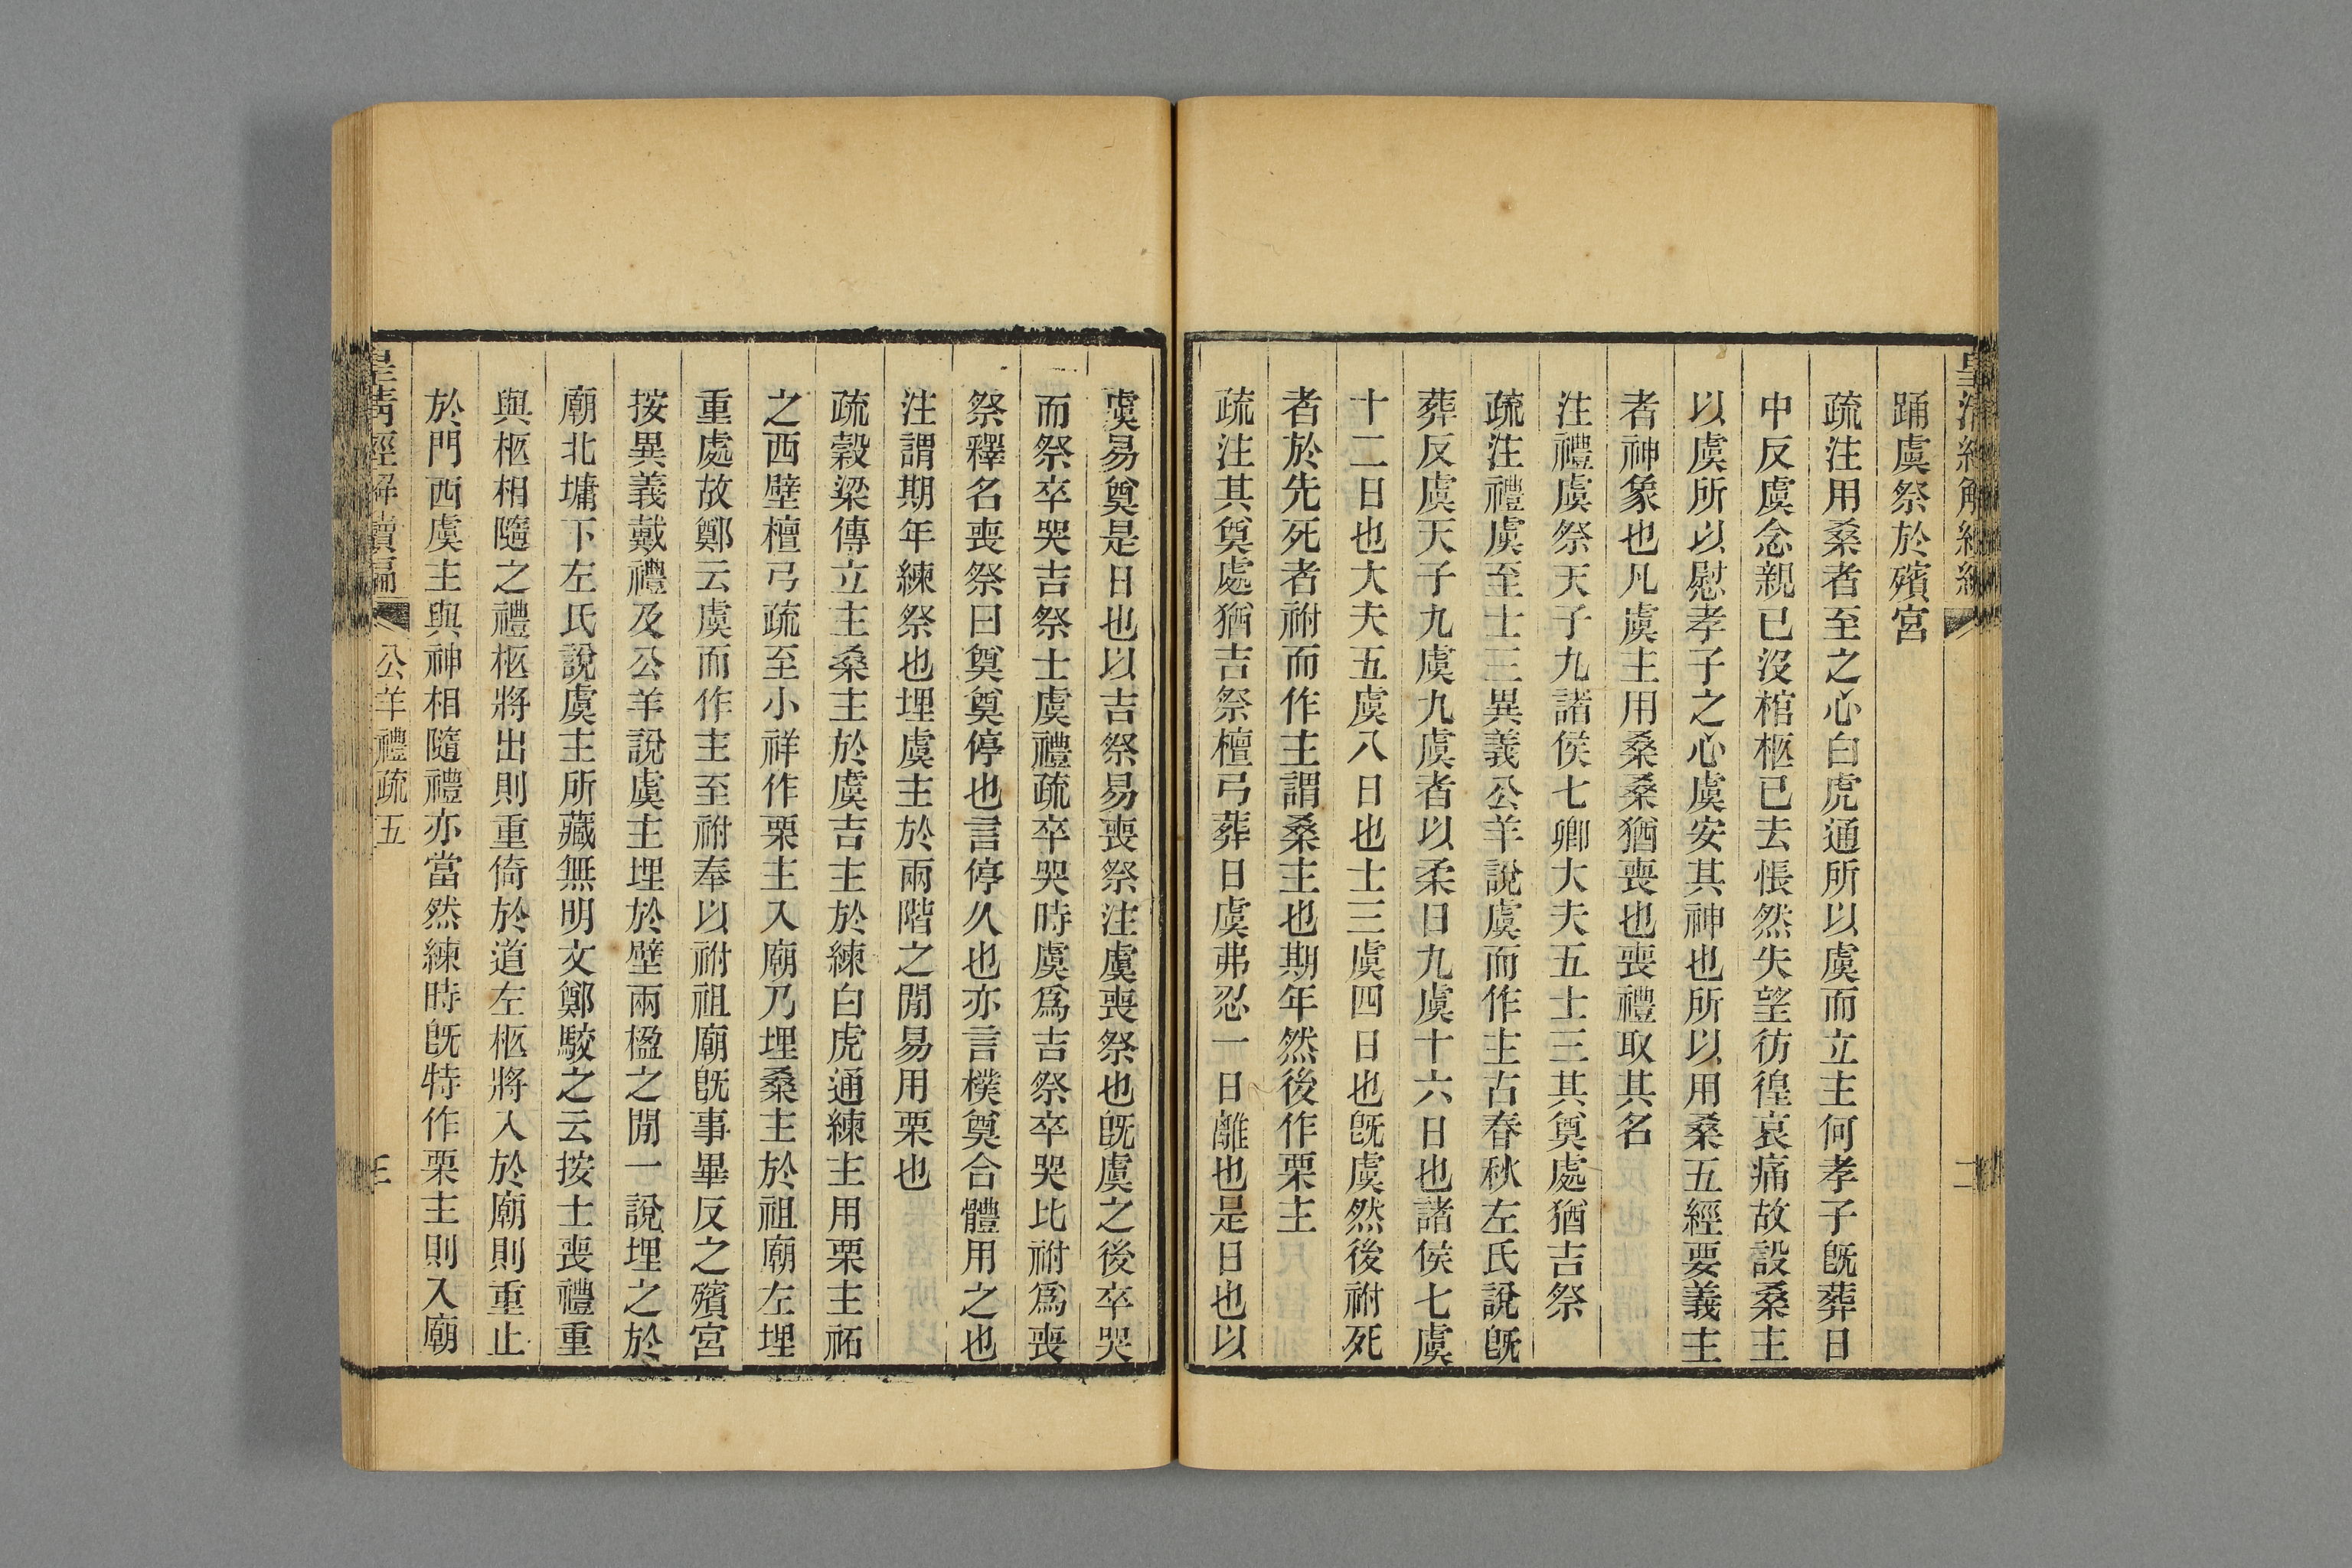 踊虞祭於殯宮
疏注用桑者至之心白虎通所以虞而立主何孝子旣葬日
中反虞念親已沒棺柩已去悵然失望彷徨哀痛故設桑主
以虞所以慰孝子之心虞安其神也所以用桑五經要義主
者神象也凡虞主用桑桑猶喪也喪禮取其名
注禮虞祭天子九諸侯七卿大夫五士三其奠處猶吉祭
疏注禮虞至士三異義公羊說虞而作主古春秋左氏說旣
葬反虞天子九虞九虞者以柔日九虞十六日也諸侯七虞
十二日也大夫五虞八日也士三虞四日也旣虞然後祔死
者於先死者祔而作主謂桑主也期年然後作栗主
疏注其奠處猶吉祭檀弓葬日虞弗忍一日離也是日也以
虞易奠是日也以吉祭易喪祭注虞喪祭也旣虞之後卒哭
而祭卒哭吉祭士虞禮疏卒哭時虞爲吉祭卒哭比祔爲喪
祭釋名喪祭曰奠奠停也言停久也亦言樸奠合體用之也
注謂期年練祭也埋虞主於兩階之閒易用栗也
疏穀梁傳立主桑主於虞吉主於練白虎通練主用栗主祏
之西壁檀弓疏至小祥作栗主入廟乃埋桑主於祖廟左埋
重處故鄭云虞而作主至祔奉以祔祖廟旣事畢反之殯宮
按異義戴禮及公羊說虞主埋於壁兩楹之閒一說埋之於
廟北墉下左氏說虞主所藏無明文鄭駮之云按士喪禮重
與柩相隨之禮柩將出則重倚於道左柩將入於廟則重止
於門西虞主與神相隨禮亦當然練時旣特作栗主則入廟
皇清經解續編
公羊禮疏五
三